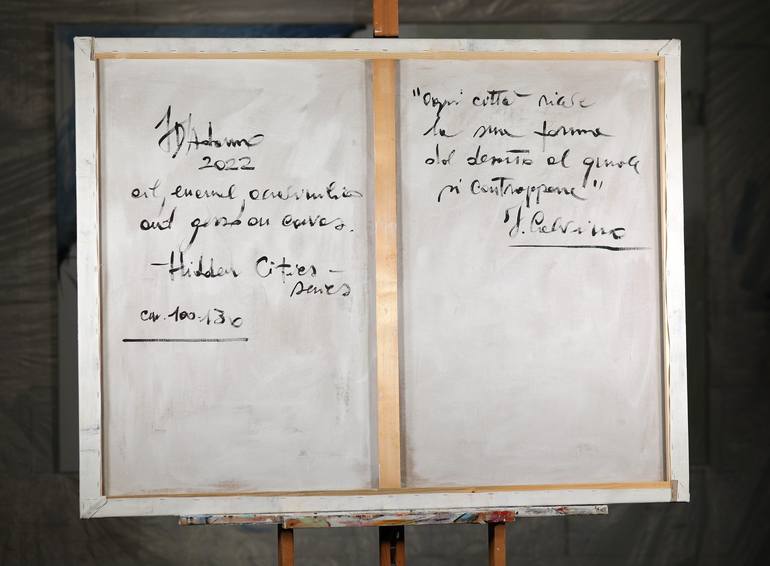 D'Adamo
2022
oil, enamel,
and gesso on canvas.
- Hidden Cities -
series
cm. 100x130
"Ogni città riceve
la sua forma
dal deserto al quale
si contrappone"
I. Calvino